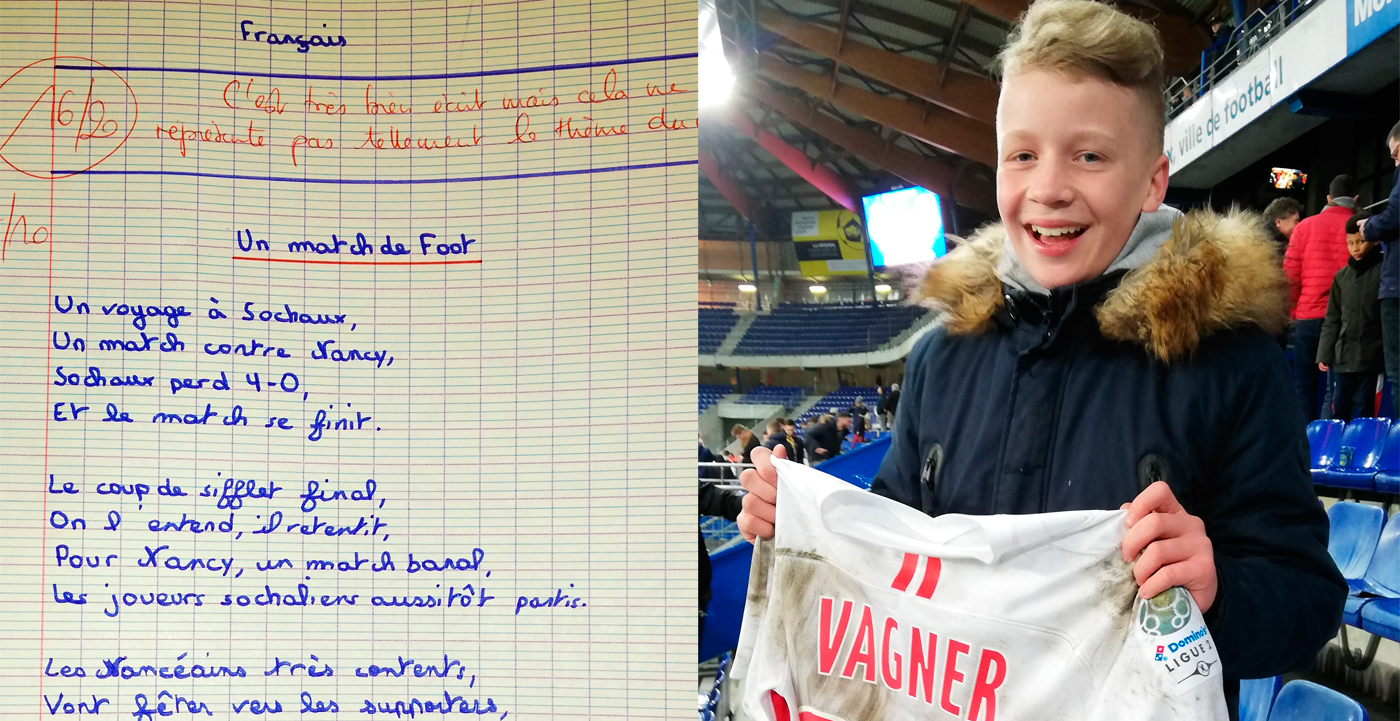 Français
16/20
C'est très bien écrit mais cela ne
représente pas tellement le thème du
/10
Un match de Foot
Un voyage à Sochaux,
Un match contre Nancy,
Sochaux perd 4-0,
Et le match se finit.
Le coup de sifflet final,
On l'entend, il retentit,
Pour Nancy, un match banal,
Les joueurs sochaliens aussitôt partis.
Les Nancéains très contents,
Vont fêter vers les supporters,
ville de football
VAGNER
Domino's
LIGUE 2